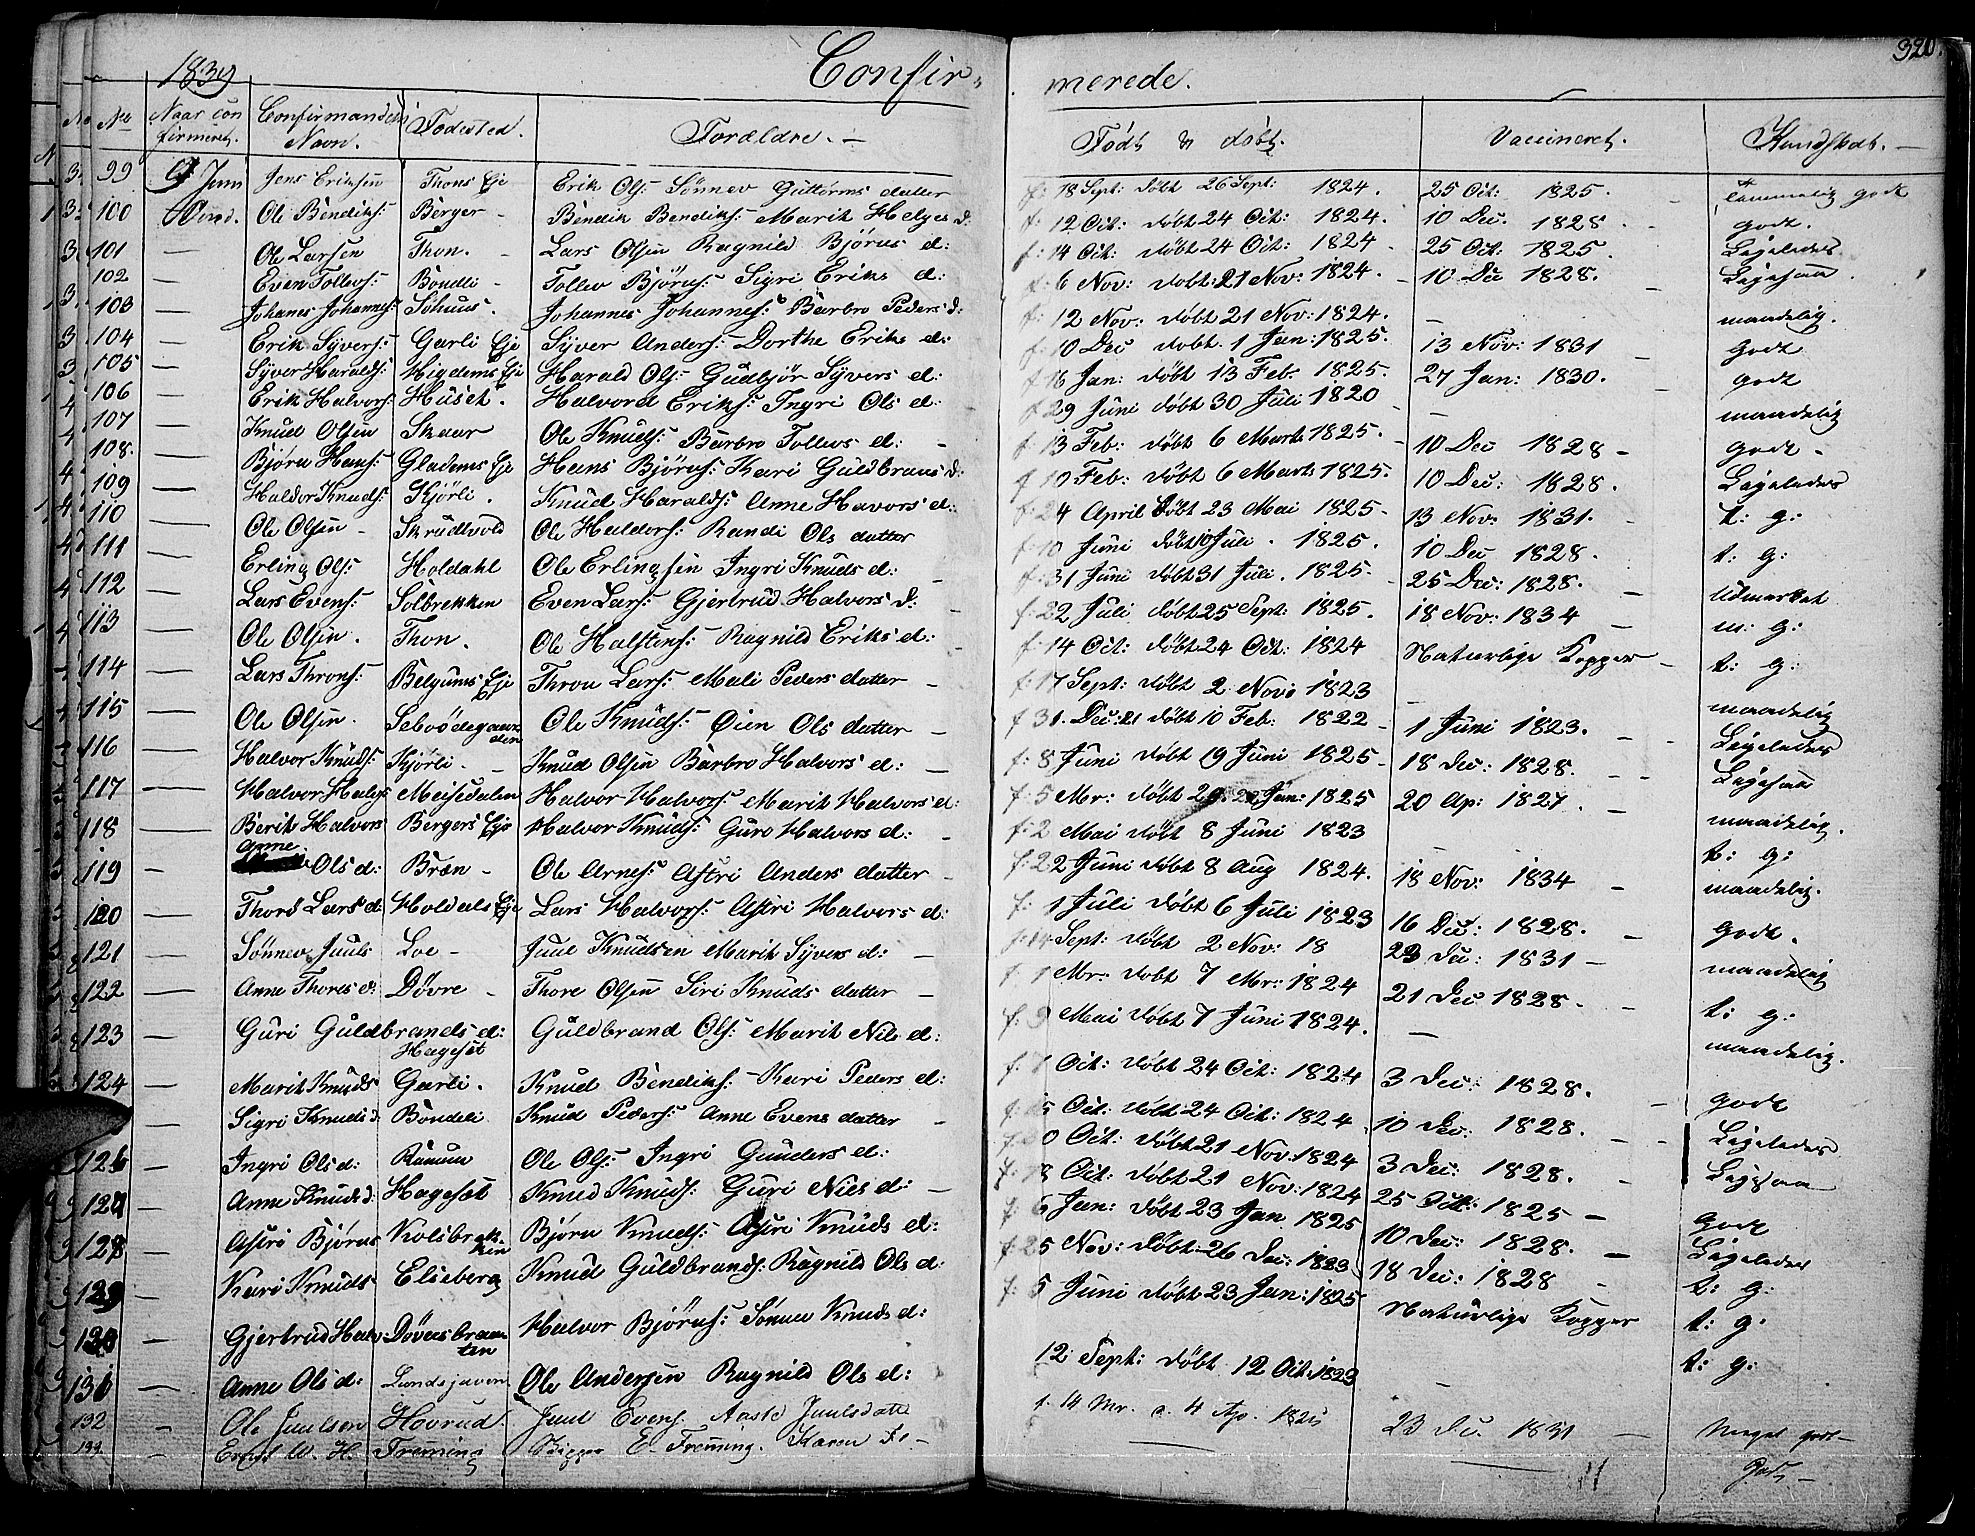 320.
1839 Confir- merede.
No Naar con firmeret. Confirmandens Navn. Fødested. Forældre. Födt & döbt. Vaccineret. Kundskab.
99 9 Juni Jens Eriksen Thons Eje Erik Ols: Sönnev Guttorms datter f: 18 Sept: döbt 26 Sept: 1824. 25 Oct: 1825. Temmelig godt
100 Ole Bendiks: Berger Bendik Bendiks: Marit Helges d: f: 12 Oct: döbt 24 Oct: 1824. 10 Dec. 1828. godt.
101 Ole Larsen Thon. Lars Olsen Ragnild Björns d: f: 14 Oct: döbt 24 Oct: 1824 25 Oct: 1825. Ligeledes
102 Even Tollevs: Böndli Tollev Björns: Sigri Eriks d: f: 6 Nov: döbt: 21 Nov: 1824. 10 Dec 1828. Ligesaa
103 Johanes Johannes: Johannes Johannes: Barbro Peders d: f: 12 Nov: döbt 21 Nov: 1824. maadelig.
104 Erik Syvers: Garli Eje Syver Anders: Dorthe Eriks d: f: 10 Dec döbt. 1 Jan: 1825. 13 Nov: 1831 godt
105 Syver Haralds: Higdems Eje Harald Ols: Gudbjör Syvers d: f: 16 Jan: döbt 13 Feb. 1825. 27 Jan: 1830. godt
106 Erik Halvors: Huset. Halvord Eriks: Ingri Ols d: f: 29 Juni döbt 30 Juli 1820 maadelig
107 Knud Olsen Skaar Ole Knuds: Barbro Tollevs d: f: 13 Feb: döbt 6 Marts 1825. 10 Dec 1828 godt
108. Björn Hans: Gladems Eje Hans Björns: Kari Guldbrans d: f: 10 Feb: döbt 6 Marts 1825. 10 Dec: 1828. Ligeledes
109 Haldor Knuds: Kjörli. Knud Haralds: Anne Havors d: f: 24 April döbt 23 Mai 1825 13 Nov: 1831. t: g:
110 Ole Olsen Skrudtvold Ole Haldors: Randi Ols datter f: 10 Juni döbt 10 Juli. 1825. 10 Dec 1828. t: g:
111 Erling Ols: Holdahl Ole Erlingsen Ingri Knuds d: f: 31 Juni döbt 31 Juli. 1825. 25 Dec: 1828. udmærket
112 Lars Evens: Solbrekken Even Lars: Gjertrud Halvors d: f: 22 Juli döbt 25 Sept: 1825. 18 Nov: 1834 m: g:
113 Ole Olsen. Thon. Ole Halstens: Ragnild Eriks d: f: 14 Oct: döbt 24 Oct: 1824 Naturlige Kopper t: g:
114 Lars Throns: Belgums Eje Thron Lars: Mali Peders datter f: 17 Sept: döbt 2 Nov: 1823 maadelig
115 Ole Olsen. Sebvödegaarden Ole Knuds: Öien Ols datter f 31. Dec: 21 döbt 10 Feb: 1822 1 Juni 1823. Ligeledes
116 Halvor Knuds: Kjörli Knud Olsen Barbro Halvors d: f: 8 Juni döbt 19 Juni 1825 18 Dec: 1828. Ligesaa
117 Halvor Halvs Meisedalen Halvor Halvors: Marit Halvors d: f: 5 Mr: döbt Jun: 1825 20 Ap: 1827. maadelig.
118 Berit Halvors Bergers Eje Halvor Knuds: Guro Halvors d: f: 2 Mai döbt 8 Juni 1823 t: g:
119 Anne Ols d: Bræn Ole Arnes: Astri Anders datter f: 22 Juni döbt 8 Aug 1824. 18 Nov: 1834 maadelig.
120 Thord Lars d: Holdals Eje Lars Halvors: Astri Halvors d: f: 1 Juli döbt 6 Juli 1823 16 Dec: 1828. Godt.
121 Sönnev Juuls Loe Juul Knudsen Marit Syvers d: f: 14 Sept: döbt 2 Nov: 18 23 Dec: 1831 maadelig
122 Anne Thores d: Dövre Thore Olsen Siri Knuds datter f. 1 Mr: döbt 7 Mr: 1824 21 Dec 1828. t: g:
123 Guri Guldbrands d: Hageset Guldbrand Ols: Marit Nils d: f: 9 Mai döbt 7 Juni 1824. maadelig.
124 Marit Knuds Garli. Knud Bendiks: Kari Peders d: f: 1 Oct: döbt 24 Oct: 1824 3 Dec: 1828. godt
Sigri Knuds d Böndli Knud Peders: Anne Evens datter f: 15 Oct: döbt 24 Oct: 1824 10 Dec: 1828. Ligeledes
126 Ingri Ols d: Ranum Ole Ols: Ingri Gunders d: Oct: döbt 21 Nov: 1824 3 Dec: 1828. Ligesaa
127 Anne Knuds d: Hageset Knud Knuds: Guri Niels d: f: 18 Oct: döbt 21 Nov: 1824 25 Oct: 1825 godt
128 Astri Björns Kolsbrekken Björn Knuds: Astri Knuds d: f: 6 Jan: döbt 23 Jan 1825 10 Dec: 1828. Ligeledes
129 Kari Knuds Elseberg Knud Guldbrands: Ragnild Ols d: f: 25 Nov: döbt: 26 Dec: 1823 18 Dec: 1828 t: g:
130 Gjertrud Halv Dövers braaten Halvor Björns: Sönnev Knuds d: f: 5 Juni döbt 23 Jan: 1825 Naturlige Kopper t: g:
131 Anne Ols d: Ole Andersen Ragnild Ols d: 12 Sept: döbt 12 Oct: 1823 t: g:
132 Ole Juulsen Hovrud Juul Evens. Aaste Juulsdatter f. 14 Mr. d. 4 Ap. 1825 23 Dec. 1831 Meget godt
133 Ernst W. H. Freming E. Freming. Karen Godt